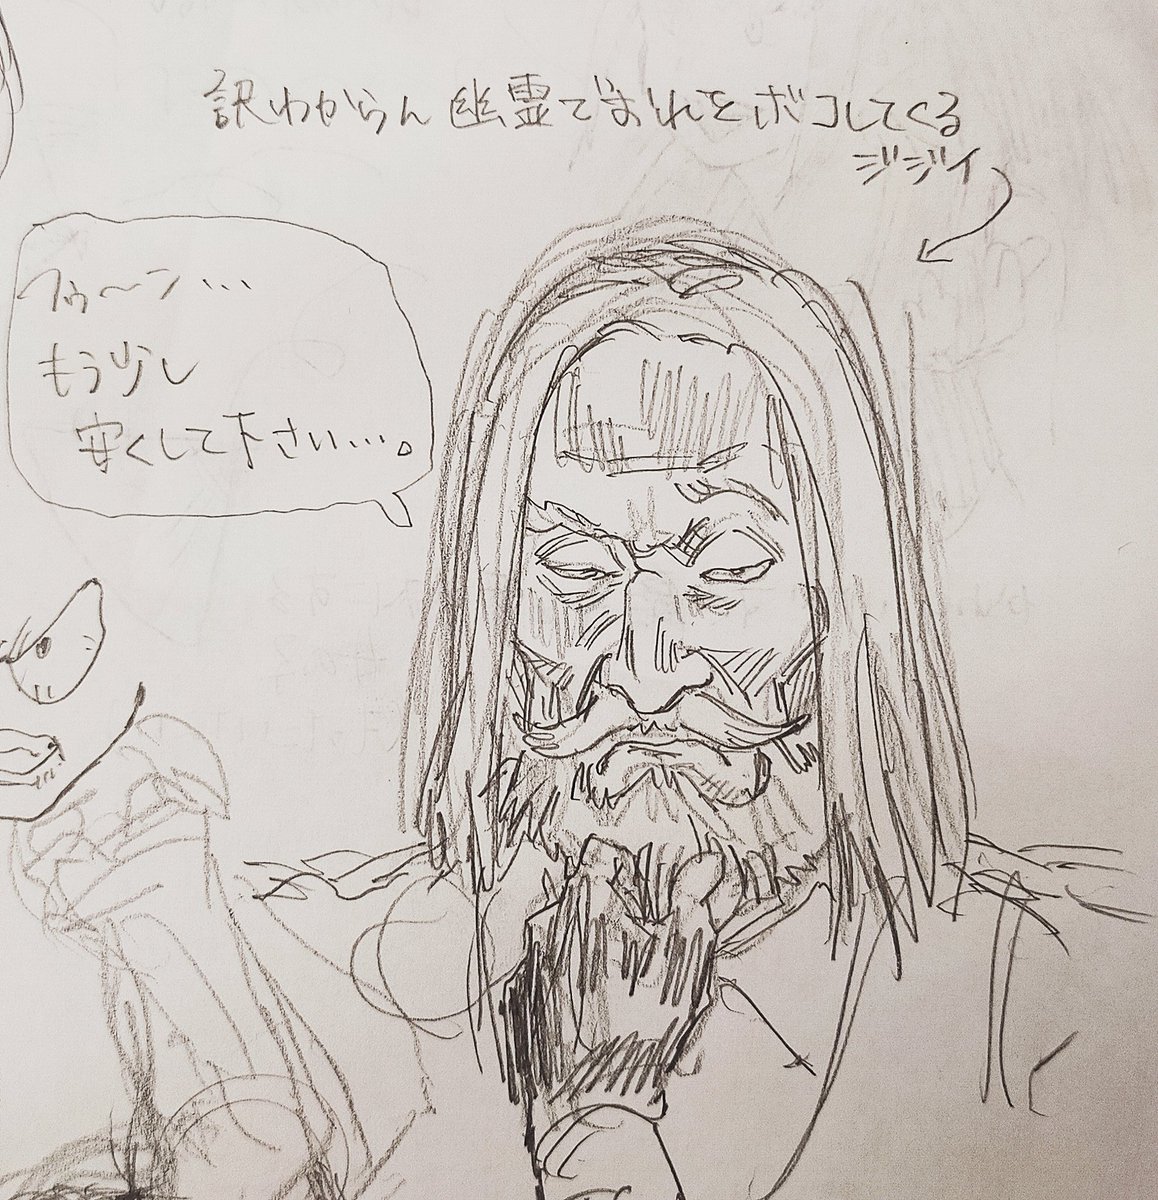 訳わからん幽霊でおれをボコしてくる
ジジイ
フゥ〜ン…
もう少し
安くして下さい…。